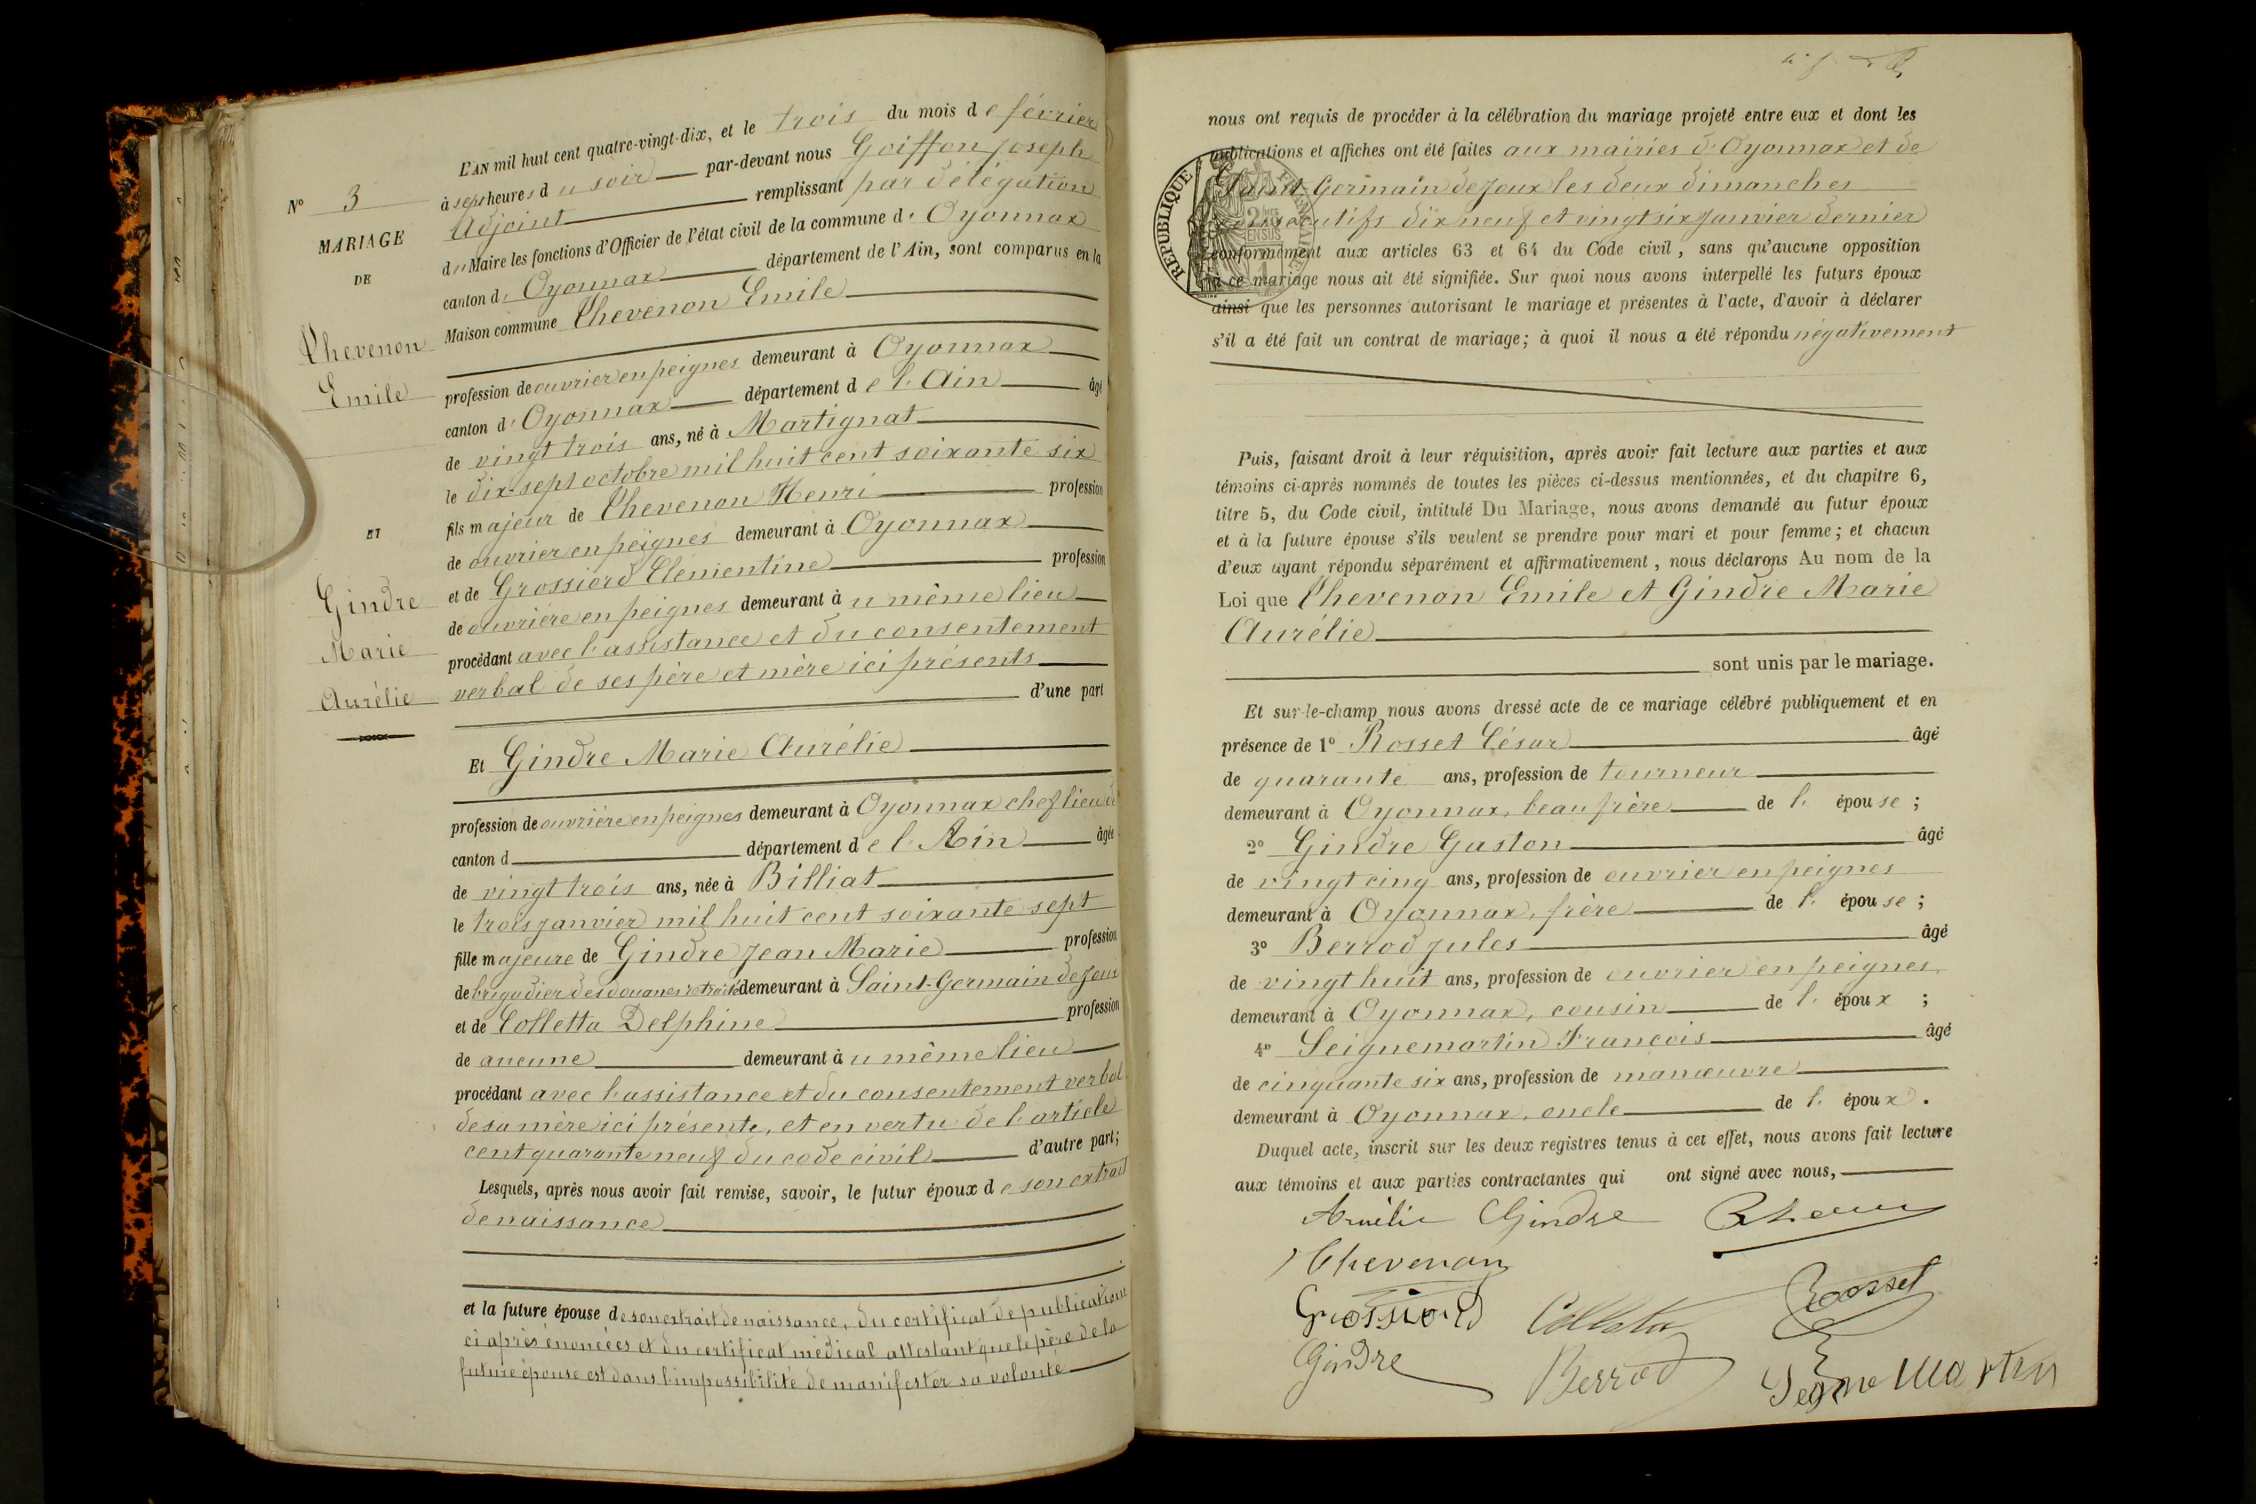 N° 3
MARIAGE
DE
Chevenon
Emile
ET
Gindre
Marie
Aurélie
L'AN mil huit cent quatre-vingt-dix, et le trois du mois de février
à sept heures du soir par-devant nous Goiffon Joseph
Adjoint remplissant par délégation
du Maire les fonctions d'Officier de l'état civil de la commune d'Oyonnax
canton d'Oyonnax département de l'Ain, sont comparus en la
Maison commune Chevenon Emile
profession de ouvrier en peignes demeurant à Oyonnax
canton d'Oyonnax département de l'Ain âgé
de vingt trois ans, né à Martignat
le dix-sept octobre mil huit cent soixante six
fils majeur de Chevenon Henri profession
de ouvrier en peignes demeurant à Oyonnax
et de Grossiord Clémentine profession
de ouvrière en peignes demeurant au même lieu
procédant avec l'assistance et du consentement
verbal de ses père et mère ici présents
d'une part
Et Gindre Marie Aurélie
profession de ouvrière en peignes demeurant à Oyonnax chef lieu de
canton d département de l'Ain âgée
de vingt trois ans, née à Billiat
le trois janvier mil huit cent soixante sept
fille majeure de Gindre Jean Marie profession
de brigadier des douanes retraité demeurant à Saint-Germain de Joux
et de Colletta Delphine profession
de aucune demeurant au même lieu
procédant avec l'assistance et du consentement verbal
de sa mère ici présente, et en vertu de l'article
cent quarante neuf du code civil d'autre part;
Lesquels, après nous avoir fait remise, savoir, le futur époux de son extrait
de naissance
et la future épouse de son extrait de naissance, du certificat de publications
ci après énoncées et du certificat médical attestant que le père de la
future épouse est dans l'impossibilité de manifester sa volonté
nous ont requis de procéder à la célébration du mariage projeté entre eux et dont les
publications et affiches ont été faites aux mairies d'Oyonnax et de
Saint-Germain de Joux les deux dimanches
consécutifs dix neuf et vingt six janvier dernier
conformément aux articles 63 et 64 du Code civil, sans qu'aucune opposition
à ce mariage nous ait été signifiée. Sur quoi nous avons interpellé les futurs époux
ainsi que les personnes autorisant le mariage et présentes à l'acte, d'avoir à déclarer
s'il a été fait un contrat de mariage; à quoi il nous a été répondu négativement
RÉPUBLIQUE FRANÇAISE
Puis, faisant droit à leur réquisition, après avoir fait lecture aux parties et aux
témoins ci-après nommés de toutes les pièces ci-dessus mentionnées, et du chapitre 6,
titre 5, du Code civil, intitulé Du Mariage, nous avons demandé au futur époux
et à la future épouse s'ils veulent se prendre pour mari et pour femme; et chacun
d'eux ayant répondu séparément et affirmativement, nous déclarons Au nom de la
Loi que Chevenon Emile et Gindre Marie
Aurélie
sont unis par le mariage.
Et sur-le-champ nous avons dressé acte de ce mariage célébré publiquement et en
présence de 1° Rosset César âgé
de quarante ans, profession de tourneur
demeurant à Oyonnax, beau frère de l'épouse;
2° Gindre Gaston âgé
de vingt cinq ans, profession de ouvrier en peignes
demeurant à Oyonnax, frère de l'épouse;
3° Berrod Jules âgé
de vingt huit ans, profession de ouvrier en peignes
demeurant à Oyonnax, cousin de l'époux;
4° Seignemartin François âgé
de cinquante six ans, profession de manœuvre
demeurant à Oyonnax, oncle de l'époux.
Duquel acte, inscrit sur les deux registres tenus à cet effet, nous avons fait lecture
aux témoins et aux parties contractantes qui ont signé avec nous,
Aurélie Gindre
Chevenon
Grossiord Colleta Rosset
Gindre Berrod